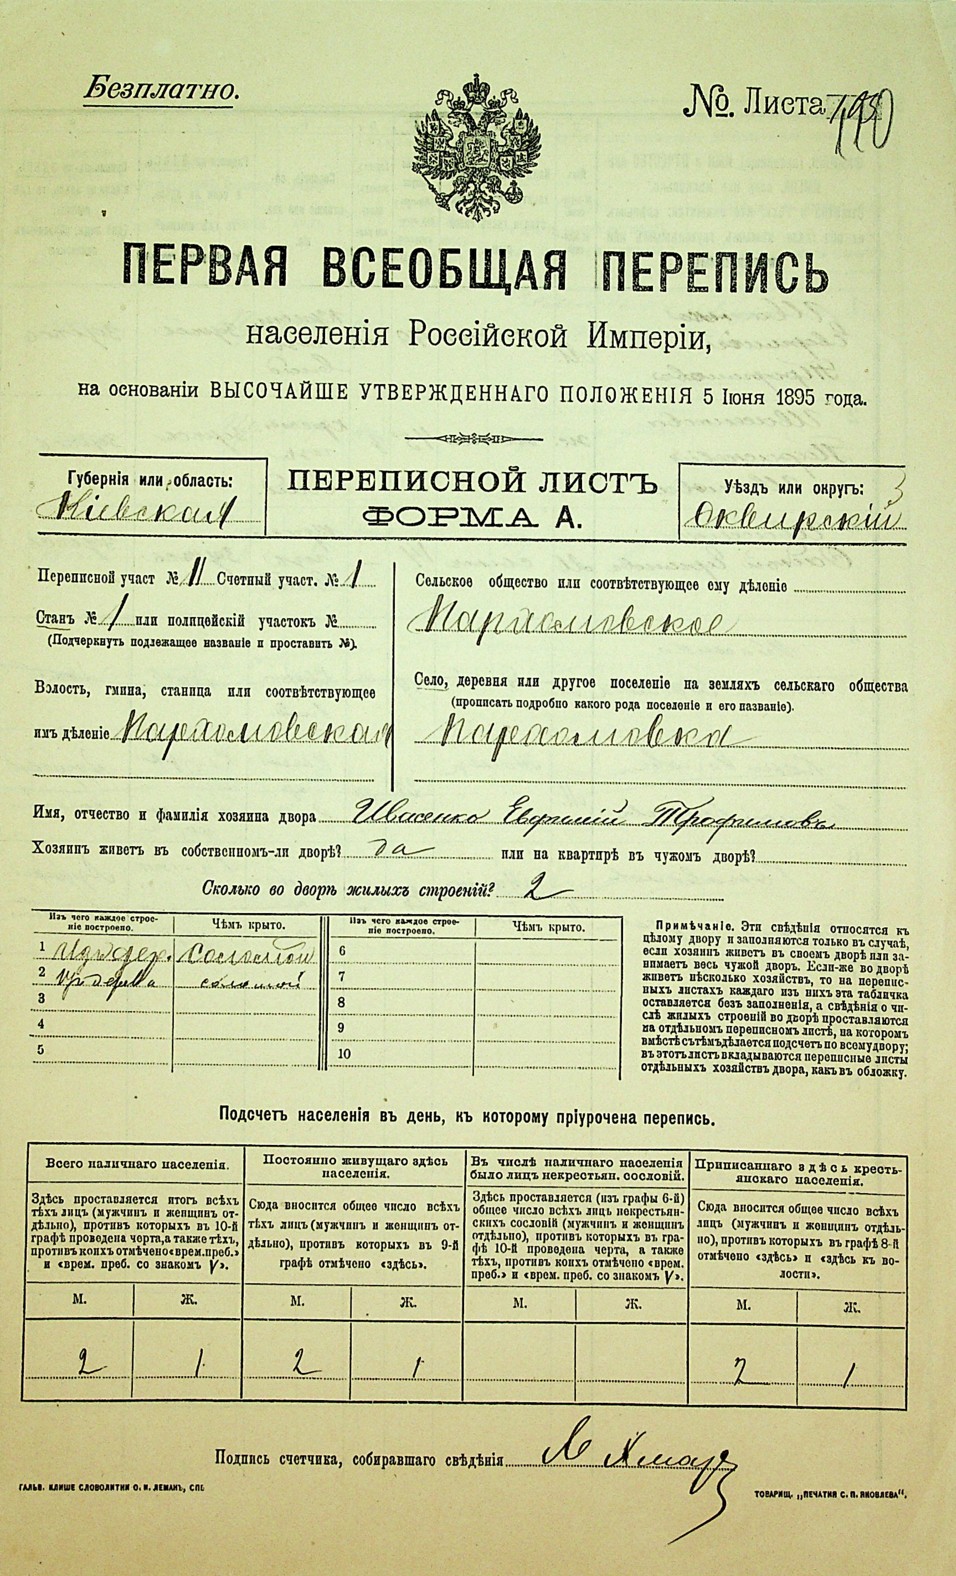 Безплатно.
№. Листа 110
ПЕРВАЯ ВСЕОБЩАЯ ПЕРЕПИСЬ
населенія Россійской Имперіи,
на основаніи ВЫСОЧАЙШЕ УТВЕРЖДЕННАГО ПОЛОЖЕНІЯ 5 Іюня 1895 года.
Губернія или область:
Кіевская
ПЕРЕПИСНОЙ ЛИСТЪ
ФОРМА А.
Уѣздъ или округъ: 3
Сквирскій
Переписной участ № 11 Счетный участ. № 1
Станъ № 1 или полицейскій участокъ №
(Подчеркнуть подлежащее названіе и проставить №).
Волость, гмина, станица или соотвѣтствующее
имъ дѣленіе Пархомовская
Сельское общество или соотвѣтствующее ему дѣленіе
Пархомовское
Село, деревня или другое поселеніе на земляхъ сельскаго общества
(прописать подробно какого рода поселеніе и его названіе).
Пархомовка
Имя, отчество и фамилія хозяина двора Ивасенко Евфимій Трофимовъ
Хозяинъ живетъ въ собственномъ-ли дворѣ? да или на квартирѣ въ чужомъ дворѣ?
Сколько во дворѣ жилыхъ строеній? 2
Изъ чего каждое строеніе построено.
Чѣмъ крыто.
Изъ чего каждое строеніе построено.
Чѣмъ крыто.
1 Изъ дер. соломой
2 изъ дерева соломой
3
4
5
6
7
8
9
10
Примѣчаніе. Эти свѣдѣнія относятся къ
цѣлому двору и заполняются только въ случаѣ,
если хозяинъ живетъ въ своемъ дворѣ или занимаетъ
весь чужой дворъ. Если-же во дворѣ
живетъ нѣсколько хозяйствъ, то на переписныхъ
листахъ каждаго изъ нихъ эта табличка
оставляется безъ заполненія, а свѣдѣнія о числѣ
жилыхъ строеній во дворѣ проставляются
на отдѣльномъ переписномъ листѣ, на которомъ
вмѣстѣ съ тѣмъ дѣлается подсчетъ по всему двору;
въ этотъ листъ вкладываются переписные листы
отдѣльныхъ хозяйствъ двора, какъ въ обложку.
Подсчетъ населенія въ день, къ которому пріурочена перепись.
Всего наличнаго населенія.
Здѣсь проставляется итогъ всѣхъ
тѣхъ лицъ (мужчинъ и женщинъ отдѣльно),
противъ которыхъ въ 10-й
графѣ проведена черта, а также тѣхъ,
противъ коихъ отмѣчено «врем. преб.»
и «врем. преб. со знакомъ V».
М. Ж.
2 1
Постоянно живущаго здѣсь
населенія.
Сюда вносится общее число всѣхъ
тѣхъ лицъ (мужчинъ и женщинъ отдѣльно),
противъ которыхъ въ 9-й
графѣ отмѣчено «здѣсь».
М. Ж.
2 1
Въ числѣ наличнаго населенія
было лицъ некрестьян. сословій.
Здѣсь проставляется (изъ графы 6-й)
общее число всѣхъ лицъ некрестьянскихъ
сословій (мужчинъ и женщинъ
отдѣльно), противъ которыхъ въ графѣ
10-й проведена черта, а также
тѣхъ, противъ коихъ отмѣчено «врем.
преб.» и «врем. преб. со знакомъ V».
М. Ж.
Приписаннаго здѣсь крестьянскаго
населенія.
Сюда вносится общее число всѣхъ
лицъ (мужчинъ и женщинъ отдѣльно),
противъ которыхъ въ графѣ 8-й
отмѣчено «здѣсь» и «здѣсь къ волости».
М. Ж.
2 1
Подпись счетчика, собиравшаго свѣдѣнія
ГАЛЬВ. КЛИШЕ СЛОВОЛИТНИ О. И. ЛЕМАНЪ, СПБ
ТОВАРИЩ. „ПЕЧАТНЯ С. П. ЯКОВЛЕВА“.